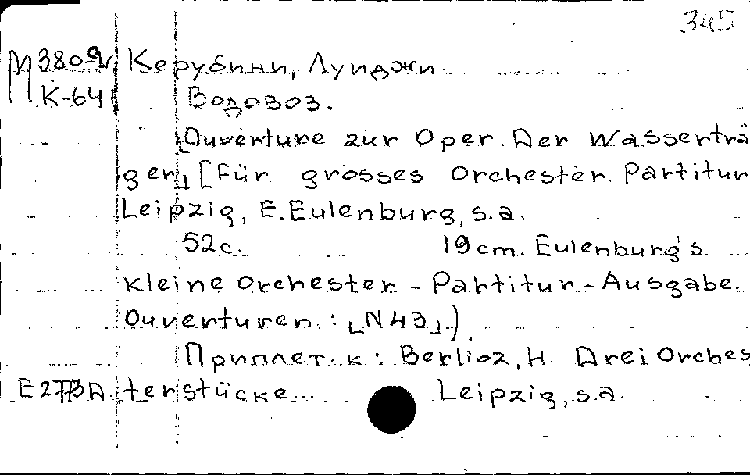 345
М 3809 Керубини, Луиджи
К-64 Водовоз.
[Ouverture zur Oper. Der Wasserträ
ger] [Für grosses Orchester. Partitur
Leipzig, E. Eulenburg, s.a.
52c. 19cm. Eulenburg's
kleine Orchester-Partitur-Ausgabe.
Ouverturen.: [N43].)
Приплет. к: Berlioz, H. Drei Orches
E 2773A terstücke... Leipzig, s.a.